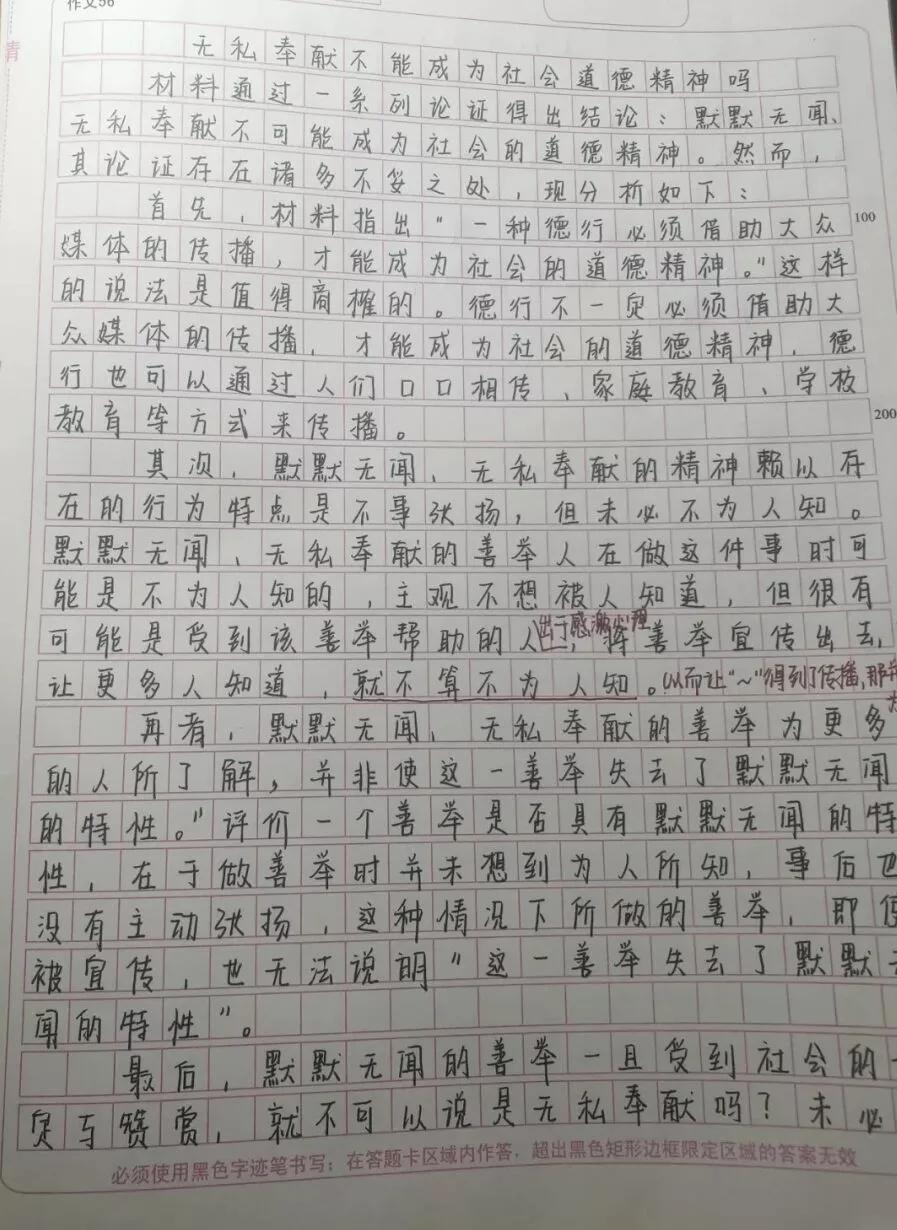 作文56
无私奉献不能成为社会道德精神吗
材料通过一系列论证得出结论：默默无闻、
无私奉献不可能成为社会的道德精神。然而，
其论证存在诸多不妥之处，现分析如下：
首先，材料指出"一种德行必须借助大众
100
媒体的传播，才能成为社会的道德精神。"这样
的说法是值得商榷的。德行不一定必须借助大
众媒体的传播，才能成为社会的道德精神，德
行也可以通过人们口口相传、家庭教育、学校
教育等方式来传播。
200
其次，默默无闻、无私奉献的精神赖以存
在的行为特点是不事张扬，但未必不为人知。
默默无闻、无私奉献的善举人在做这件事时可
能是不为人知的，主观不想被人知道，但很有
可能是受到该善举帮助的人出于感激心理，将善举宣传出去，
让更多人知道，就不算不为人知。从而让"~"得到了传播，那并
再者，默默无闻、无私奉献的善举为更多
的人所了解，并非使这一善举失去了默默无闻
的特性。"评价一个善举是否具有默默无闻的特
性，在于做善举时并未想到为人所知，事后也
没有主动张扬，这种情况下所做的善举，即使
被宣传，也无法说明"这一善举失去了默默无
闻的特性"。
最后，默默无闻的善举一旦受到社会的
定与赞赏，就不可以说是无私奉献吗？未必
必须使用黑色字迹笔书写；在答题卡区域内作答，超出黑色矩形边框限定区域的答案无效